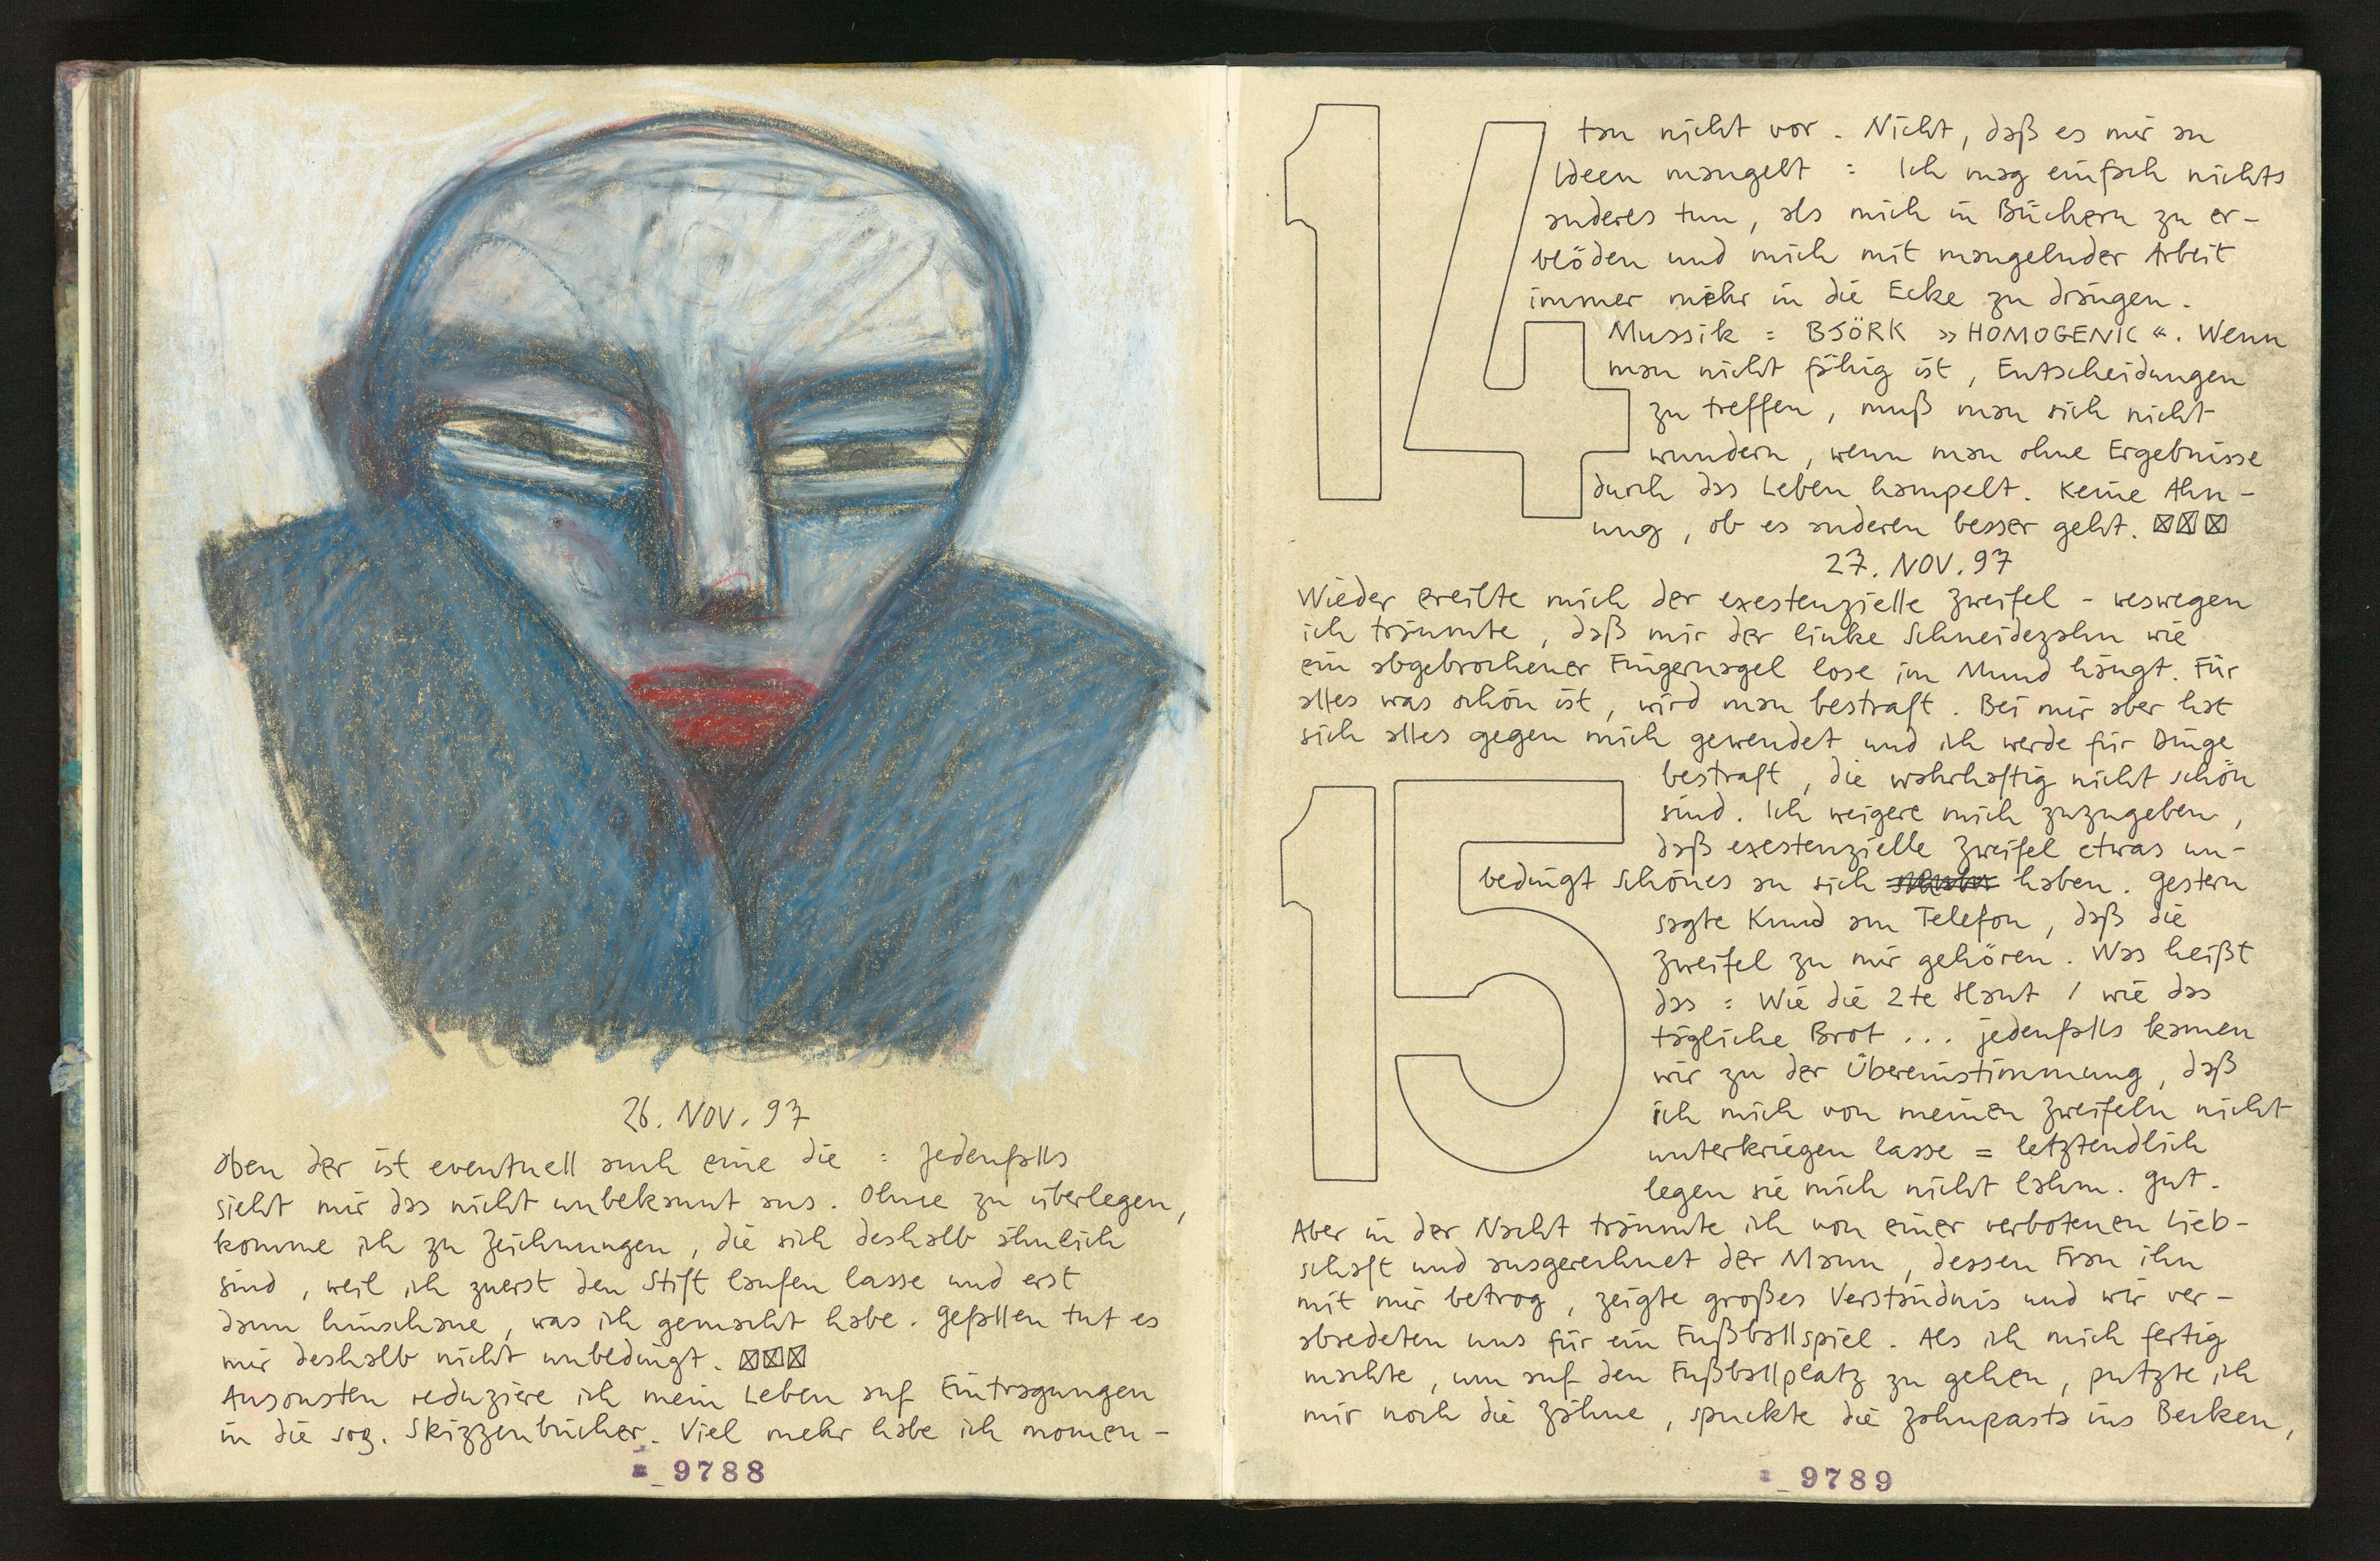 26. NOV. 97
oben der ist eventuell auch eine die : jedenfalls
sieht mir das nicht unbekannt aus. Ohne zu überlegen,
komme ich zu Zeichnungen, die sich deshalb ähnlich
sind, weil ich zuerst den Stift laufen lasse und erst
dann hinschaue, was ich gemacht habe. Gefallen tut es
mir deshalb nicht unbedingt. ☒☒☒
Ansonsten reduziere ich mein Leben auf Eintragungen
in die sog. Skizzenbücher. Viel mehr habe ich momen-
9788
14
tan nicht vor. Nicht, daß es mir an
Ideen mangelt : Ich mag einfach nichts
anderes tun, als mich in Büchern zu er-
blöden und mich mit mangelnder Arbeit
immer mehr in die Ecke zu drängen.
Mussik : BJÖRK »HOMOGENIC«. Wenn
man nicht fähig ist, Entscheidungen
zu treffen, muß man sich nicht
wundern, wenn man ohne Ergebnisse
durch das Leben hampelt. Keine Ahn-
ung, ob es anderen besser geht. ☒☒☒
27. NOV. 97
Wieder ereilte mich der exestenzielle Zweifel - weswegen
ich träumte, daß mir der linke Schneidezahn wie
ein abgebrochener Fingernagel lose im Mund hängt. Für
alles was schön ist, wird man bestraft. Bei mir aber hat
sich alles gegen mich gewendet und ich werde für Dinge
15
bestraft, die wahrhaftig nicht schön
sind. Ich weigere mich zuzugeben,
daß exestenzielle Zweifel etwas un-
bedingt Schönes an sich haben. Gestern
sagte Knud am Telefon, daß die
Zweifel zu mir gehören. Was heißt
das : Wie die 2te Haut / wie das
tägliche Brot ... jedenfalls kamen
wir zu der Übereinstimmung, daß
ich mich von meinen Zweifeln nicht
unterkriegen lasse = letztendlich
legen sie mich nicht lahm. Gut.
Aber in der Nacht träumte ich von einer verbotenen Lieb-
schaft und ausgerechnet der Mann, dessen Frau ihn
mit mir betrog, zeigte großes Verständnis und wir ver-
abredeten uns für ein Fußballspiel. Als ich mich fertig
machte, um auf den Fußballplatz zu gehen, putzte ich
mir noch die Zähne, spuckte die Zahnpasta ins Becken,
9789